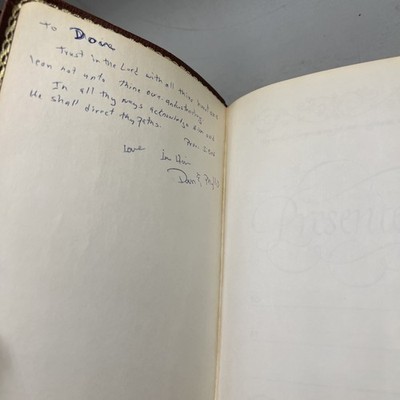 To Dove
Trust in the Lord with all thine heart and
lean not unto thine own understanding
In all thy ways acknowledge him and
He shall direct thy Paths.
Prov. 3:5+6
Love In Him
Presente